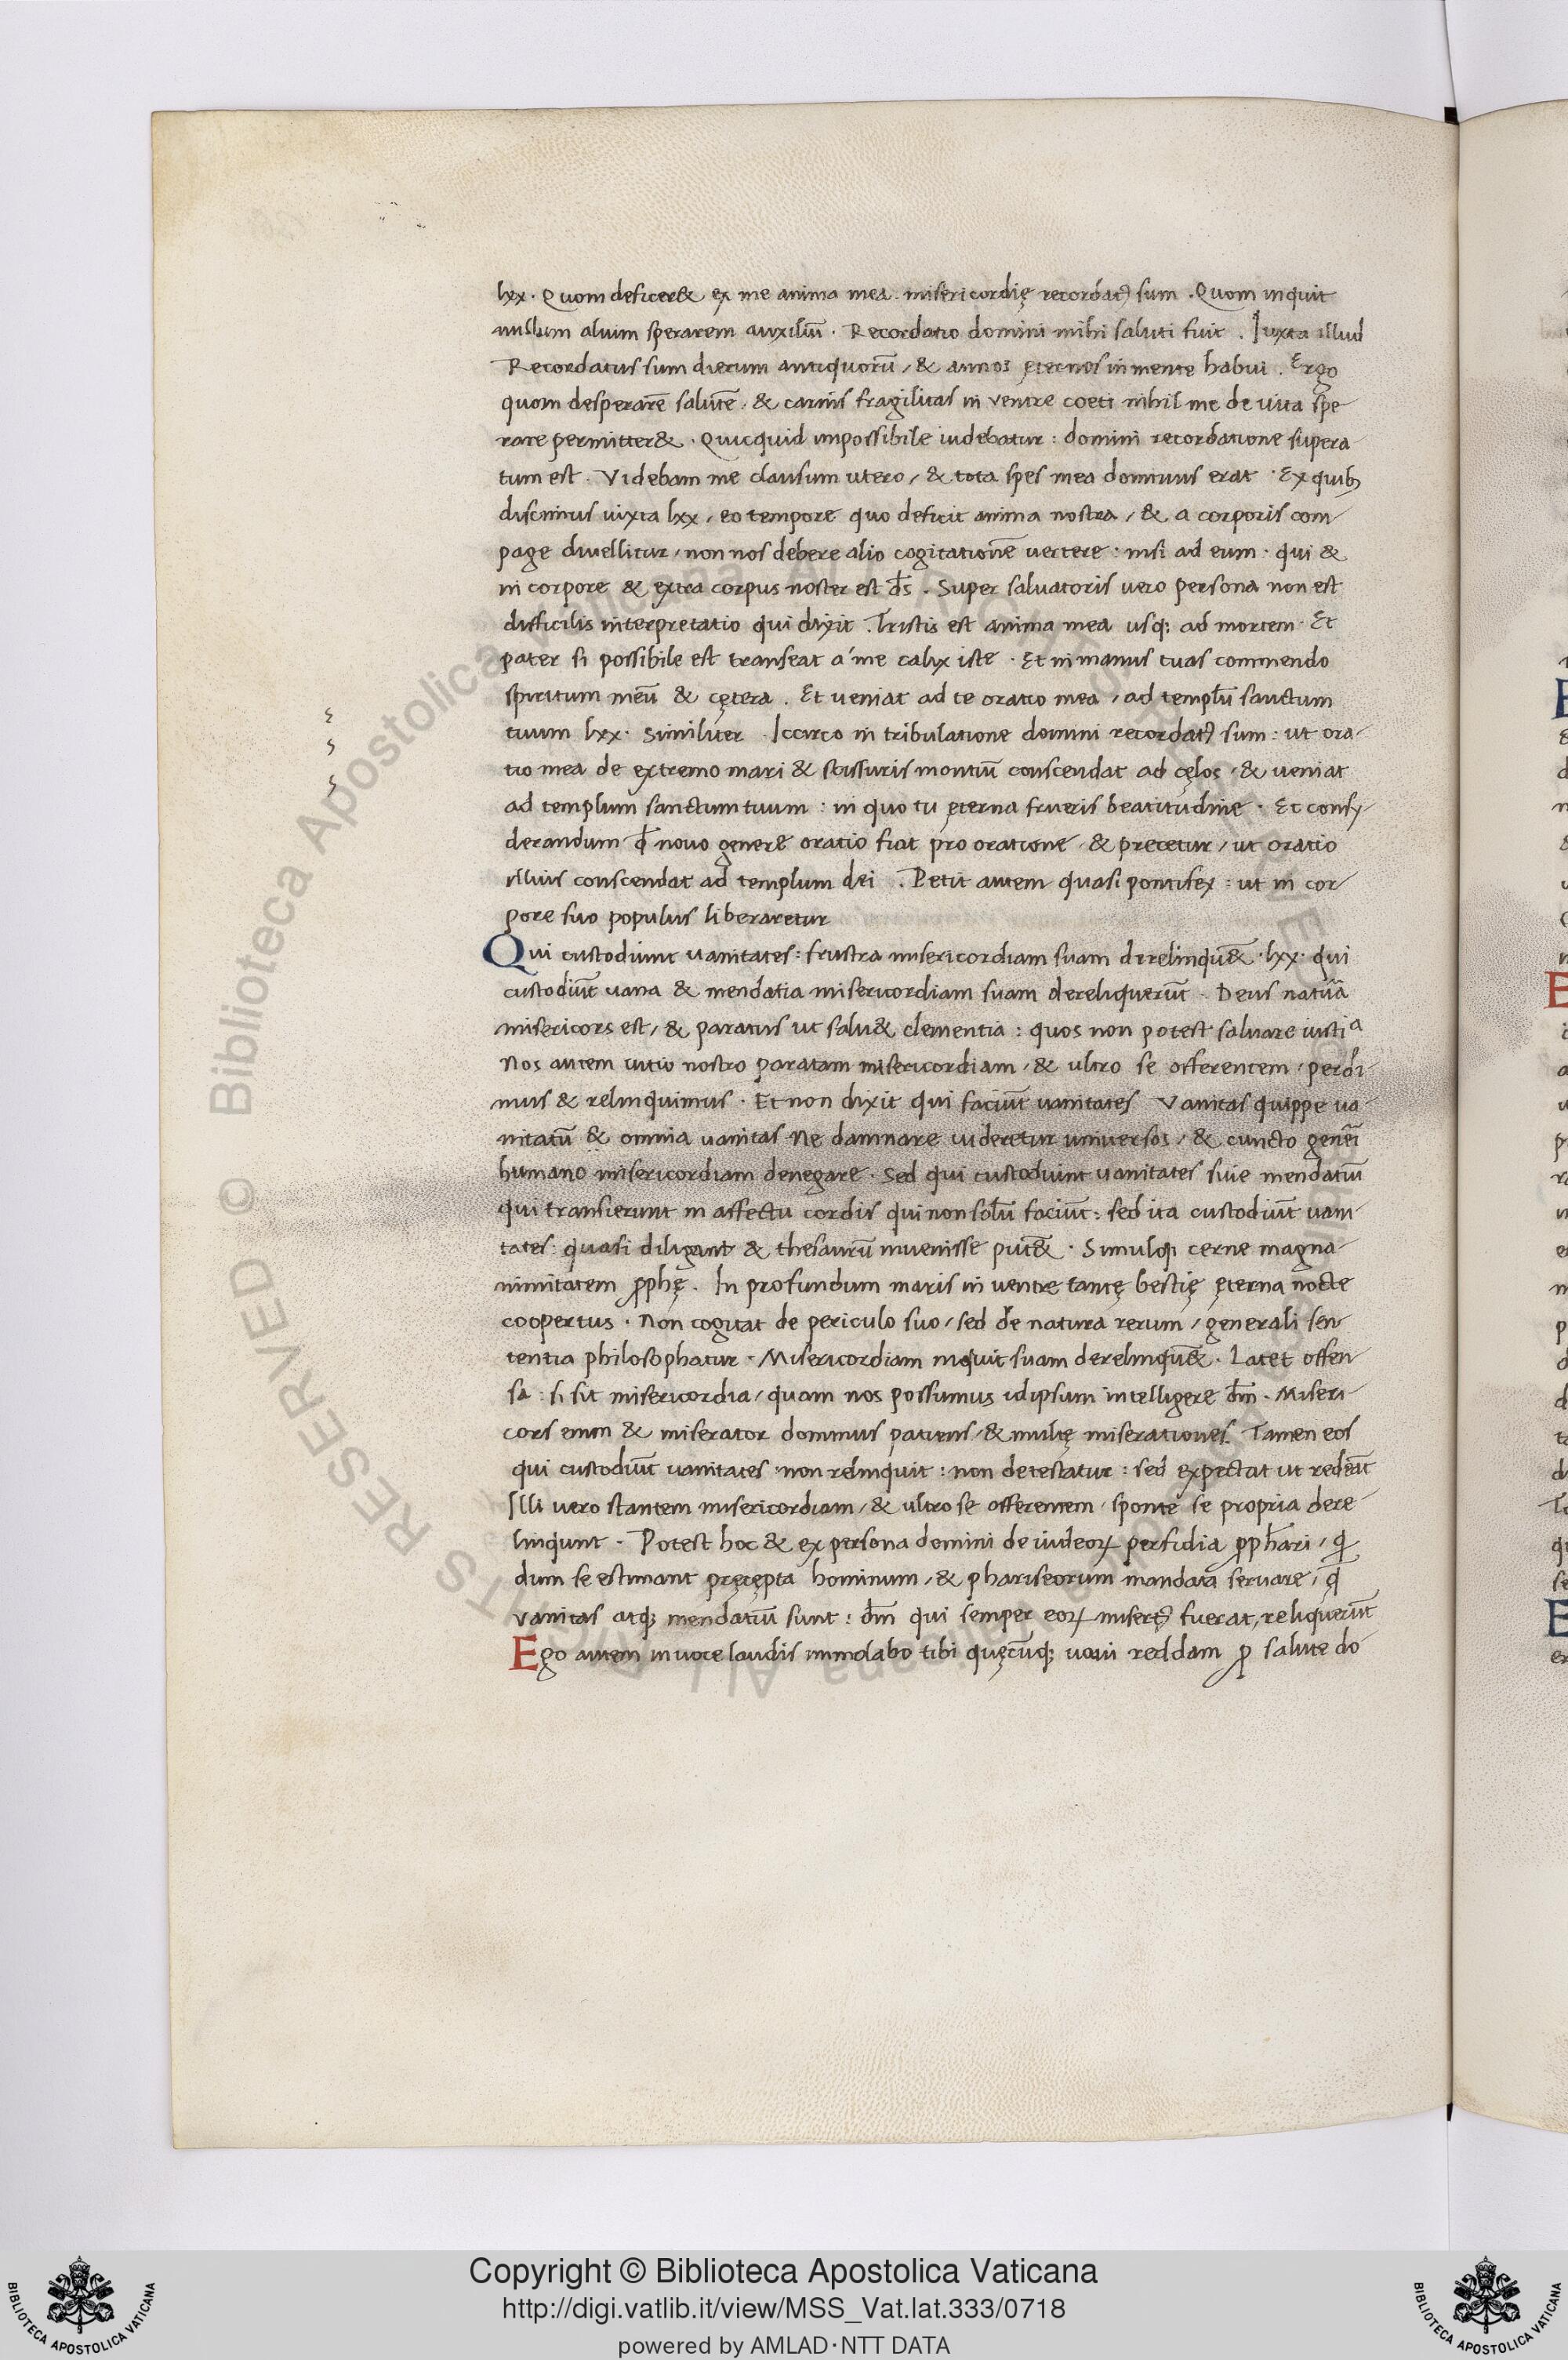 lxx · Quom deficer& ex me anima mea · misericordię recordatꝰ sum . Quom inquit
nullum alium sperarem auxiliū · Recordatio domini mihi saluti fuit . Iuxta illud
Recordatus sum dierum antiquorū / & annos ęternos in mente habui . Ergo
quom desperarē salutē / & carnis fragilitas in ventre coeti nihil me de uita spe
rare permitter& · Quicquid impossibile uidebatur : domini recordatione supera
tum est . Videbam me clausum utero / & tota spes mea dominus erat · Ex quibꝫ
discimus iuxta lxx / eo tempore quo deficit anima nostra / & a corporis com
page diuellitur / non nos debere alio cogitationē uertere · nisi ad eum · qui &
in corpore & extra corpus noster est d̄s . Super saluatoris vero persona non est
difficilis interpretatio qui dixit . Tristis est anima mea usqꝫ ad mortem · Et
pater si possibile est transeat a´me calix iste · Et in manus tuas commendo
spiritum meū & cętera . Et ueniat ad te oratio mea / ad templū sanctum
tuum lxx · Similiter · Iccirco in tribulatione domini recordatꝰ sum : ut ora
tio mea de extremo mari & scissuris montiū conscendat ad cęlos / & ueniat
ad templum sanctum tuum : in quo tu ęterna frueris beatitudine · Et consy
derandum q̄ nouo genere oratio fiat pro oratione / & precetur / ut oratio
illius conscendat ad templum dei . Petit autem quasi pontifex : ut in cor
pore suo populus liberaretur
Qui custodiunt uanitates : frustra misericordiam suam derelinqū& · lxx · qui
custodiūt uana & mendatia misericordiam suam dereliquerūt · Deus natura
misericors est / & paratus ut salu& clementia : quos non potest saluare iustia
Nos autem uitio nostro paratam misericordiam / & ultro se offerentem / perdi
mus & relinquimus · Et non dixit qui faciūt uanitates Vanitas quippe ua
nitatū & omnia uanitas Ne damnare uideretur uniuersos / & cuncto genēi
humano misericordiam denegare · Sed qui custodiunt uanitates siue mendatiū
qui transierunt in affectu cordis qui non solū faciūt : sed ita custodiūt uani
tates : quasi diligant & thesaurū inuenisse putē& · Simulqꝫ cerne magna
nimitatem ꝓphę . In profundum maris in uentre tantę bestię ęterna nocte
coopertus · Non cogitat de periculo suo / sed de natura rerum / generali sen
tentia philosophatur · Misericordiam inquit suam derelinqū& · Latet offen
sa : si sit misericordia / quam nos possumus idipsum intelligere dm̄ · Miseri
cors enim & miserator dominus patiens / & multę miserationes . Tamen eos
qui custodiūt uanitates · non relinquit : non detestatur : sed expectat ut redeāt
Illi uero stantem misericordiam / & ultro se offerentem / sponte se propria dere
linqunt · Potest hoc & ex persona domini de iudeoꝝ perfidia ꝓphari / ꝗ
dum se estimant pręcępta hominum / & phariseorum mandata seruare / q̄
vanitas atqꝫ mendatiū sunt : dm̄ qui semper eoꝝ misertꝰ fuerat , reliquerūt
Ego autem in uoce laudis immolabo tibi quęcūqꝫ uoui reddam ꝓ salute do
Copyright © Biblioteca Apostolica Vaticana
http://digi.vatlib.it/view/MSS_Vat.lat.333/0718
powered by AMLAD·NTT DATA
BIBLIOTECA APOSTOLICA VATICANA
BIBLIOTECA APOSTOLICA VATICANA